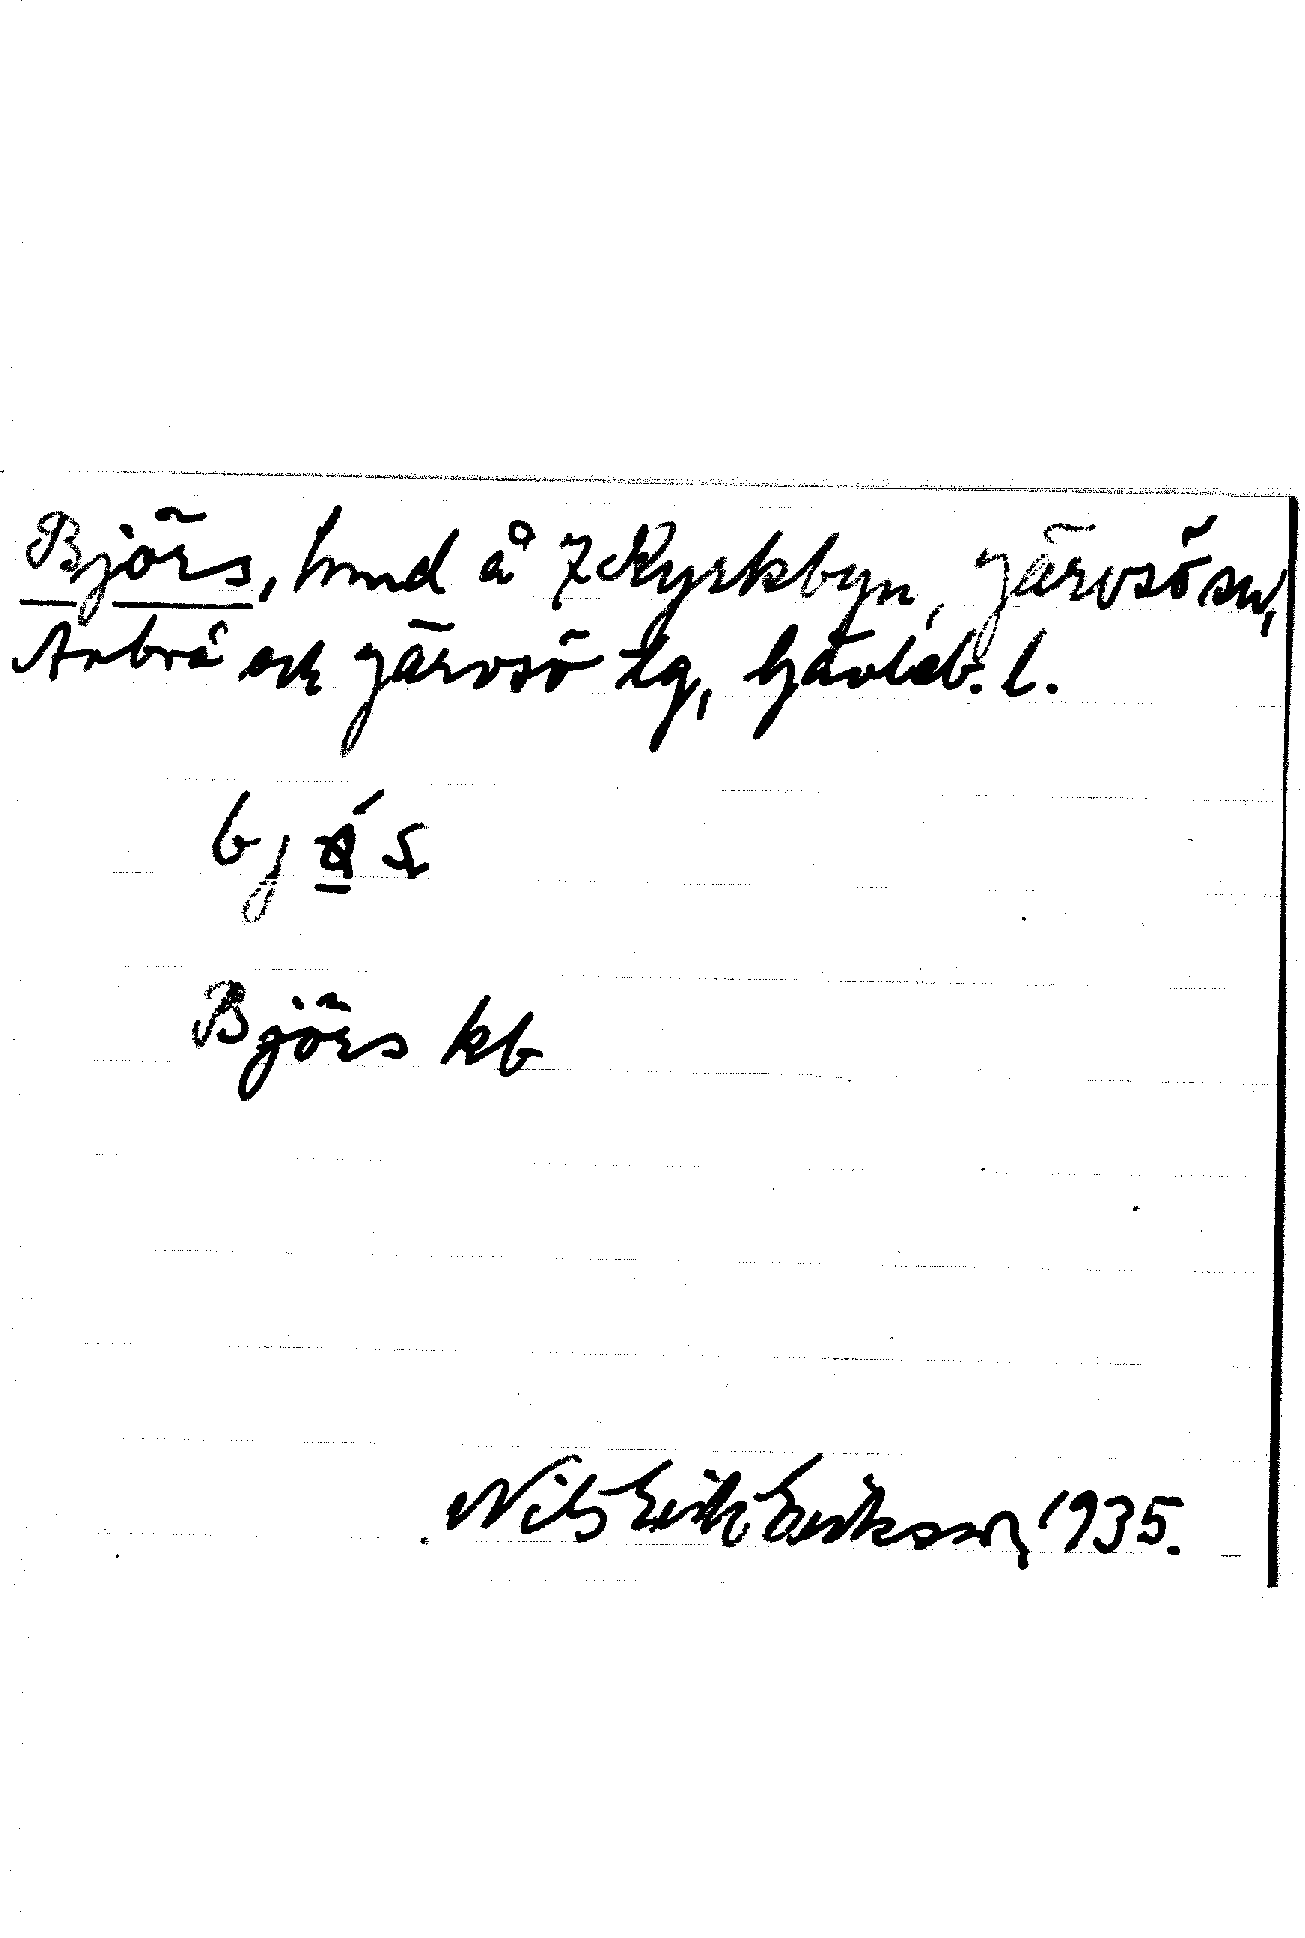 Björs, hmd å 7 Kyrkbyn, Järvsö sn,
Arbrå och Järvsö tg, Gävleb. l.
Björs kb
Nils Erik Eriksson, 1935.